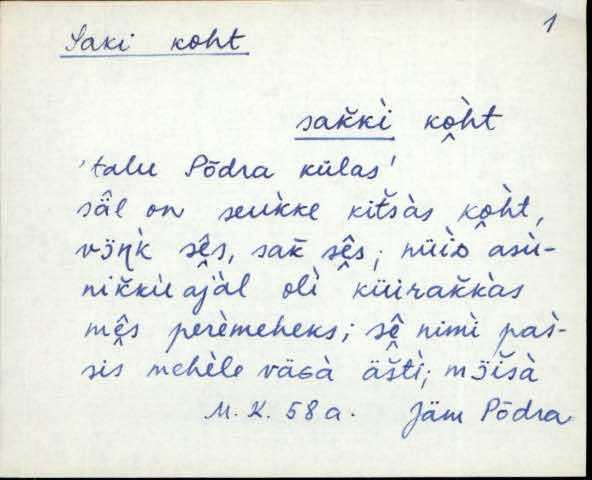 1
Saki koht
sak̆kì kò̭ht
'talu Põdra külas'
sä̂l on seukke kitšàs kò̭ht,
vɔ̈ŋ̀k sḙ̂s, sak̆ sḙ̂s; nüìᴅ asù-
nik̆kù ajàl olì küirak̆kàs
mḙ̂s perèmeheks; sḙ̂ nimì pas̀-
sis mehèle väɢà äs̆tì; mɔ̈is̆à
M. K. 58 a. Jäm Põdra